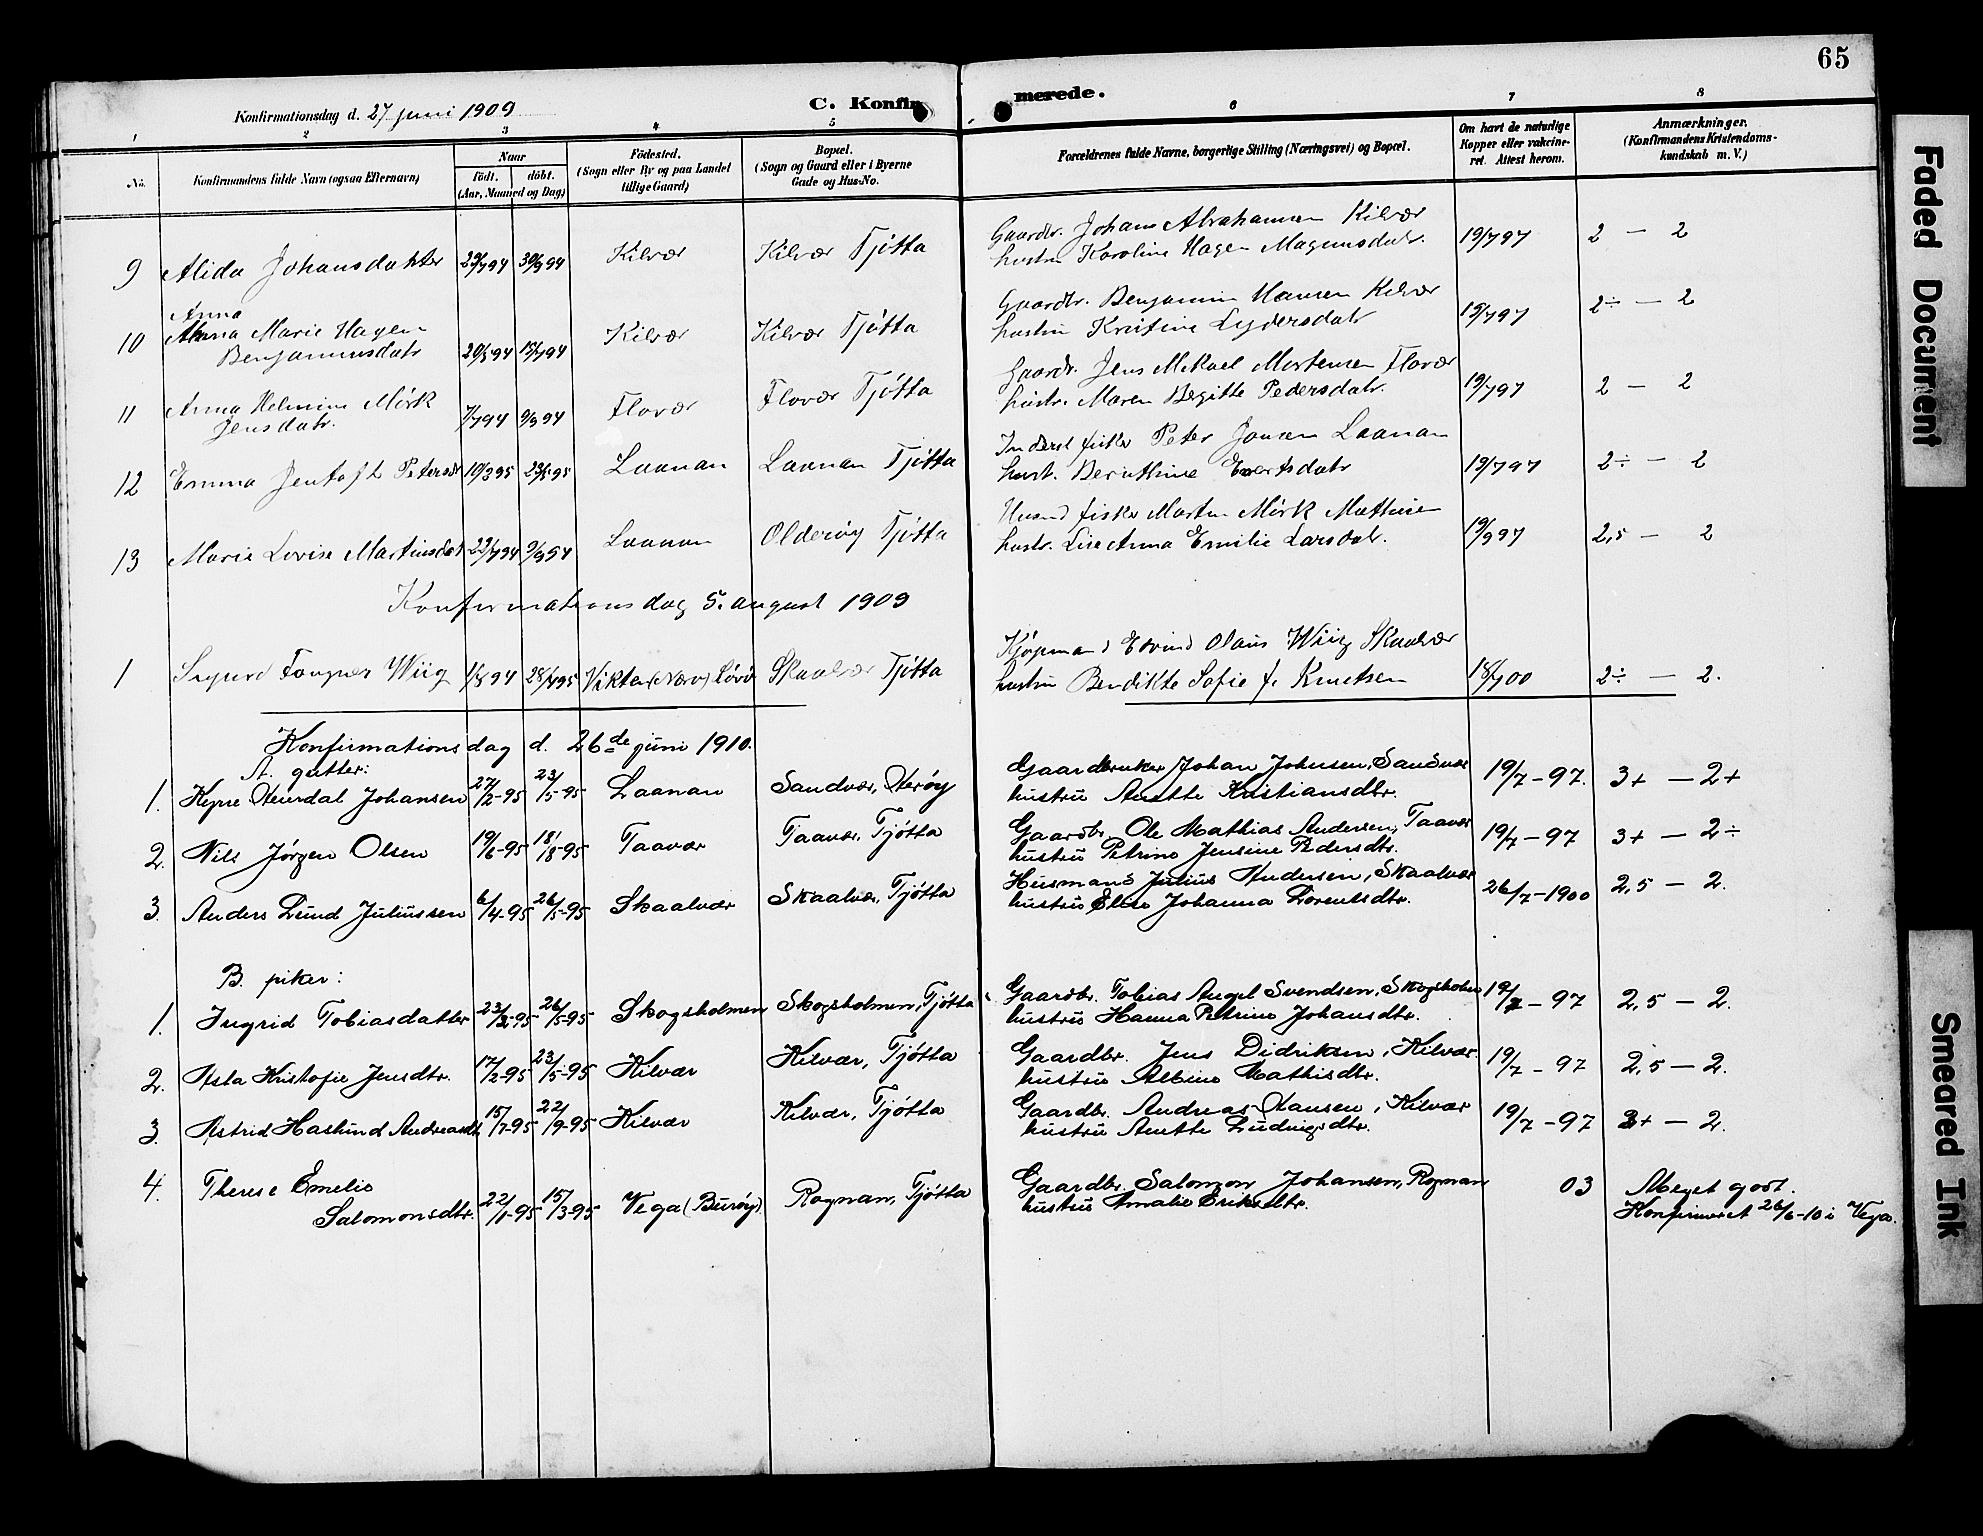 65
Konfirmationsdag d. 27 juni 1909
C. Konfirmerede.
1 2 3 4 5 6 7 8
No.
Konfirmandens fulde Navn (ogsaa Efternavn)
Naar
født. døbt.
(Aar, Maaned og Dag)
Fødested.
(Sogn eller By og paa Landet
tillige Gaard)
Bopæl.
(Sogn og Gaard eller i Byerne
Gade og Hus-No.
Forældrenes fulde Navne, borgerlige Stilling (Næringsvei) og Bopæl.
Om havt de naturlige
Kopper eller vakcine-
ret. Attest herom.
Anmærkninger.
(Konfirmandens Kristendoms-
kundskab m. V.)
Gaardbr. Johans Abrahamsen Kilvær
9 Alida Johansdatter 29/7 94 30/9 94 Kilvær Kilvær Tjøtta hustru Karoline Hagen Magnusdatr. 19/7 97 2 — 2
Anna
Gaardbr. Benjamin Hansen Kilvær
10 Anna Marie Hagen Kilvær Kilvær Tjøtta hustru Kristine Lydersdatr 19/7 97 2÷ — 2
Benjaminsdatr 20/5 94 15/7 94
Gaardbr. Jens Mikael Mortensen Flovær
11 Anna Helmine Mörk 7/7 94 9/9 94 Flovær Flovær Tjøtta hustr. Maren Begitte Pedersdatr. 19/7 97 2 — 2
Jensdatr.
Inderst fisker Peter Jansen Laanan
12 Emma Jentoft Petersdr 10/3 95 23/5 95 Laanan Laanan Tjøtta hust. Beruthine Evertsdatr 19/7 97 2÷ — 2
fisker Martin Mörk Mathisen
13 Marie Lovise Martinsdat 22/7 94 9/9 94 Laanan Olderøy Tjøtta hustr. Lise Anna Emilie Larsdatr. 19/9 97 2,5 — 2
Konfirmationsdag 5. august 1909
Kjøpmand Edvind Olaus Wiig Skaalvær
1 Sigurd Fougner Wiig 1/8 94 28/4 95 Vikten (Nærø) Skaalvær Tjøtta hustru Bendikte Sofie f. Knutsen 18/7 00 2÷ — 2.
Konfirmationsdag d. 26de juni 1910.
A. gutter:
Gaardbruker Johan Johnsen, Sandvær
1. Heimdal Johansen 27/2-95 23/5-95 Laanan Sandvær, Herøy hustru Anette Kristiansdtr. 19/7-97. 3+ — 2+
Gaardbr. Ole Mathias Andersen, Taavær
2. Nils Jørgen Olsen 19/6-95 18/8-95 Taavær Taavær, Tjøtta hustru Petrine Jensine Pedersdtr. 19/7-97 3+ — 2÷
Husmand Julius Andersen, Skaalvær
3. Anders Lund Juliussen 6/4-95 26/5-95 Skaalvær Skaalvær, Tjøtta hustru Elise Johanna Lorentsdtr. 26/7-1900 2,5 — 2.
B. piker:
Gaardbr. Tobias Angel Svendsen, Skogsholmen
1. Ingrid Tobiasdatter 23/3-95 26/5-95 Skogsholmen Skogsholmen, Tjøtta hustru Hanna Petrine Johansdtr. 19/7-97 2,5 — 2.
Gaardbr. Jens Didriksen, Kilvær
2. Asta Kristofie Jensdtr. 17/2-95 23/5-95 Kilvær Kilvær, Tjøtta hustru Albine Mathisdtr. 19/7-97 2,5 — 2.
Gaardbr. Andreas Hansen, Kilvær
3. Astrid Haslund Andreasdtr 15/7-95 22/9-95 Kilvær Kilvær, Tjøtta hustru Anette Ludvigsdtr. 19/7-97 3+ — 2.
4. Therese Emelie Gaardbr. Salomon Johansen, Rognan
Salomonsdtr. 22/1-95 15/3-95 Vega (Burøy) Rognan, Tjøtta hustru Amalie Eriksdtr. 03 Meget godt.
Konfirmeret 26/6-10 i Vega.
Faded Document
Smeared Ink